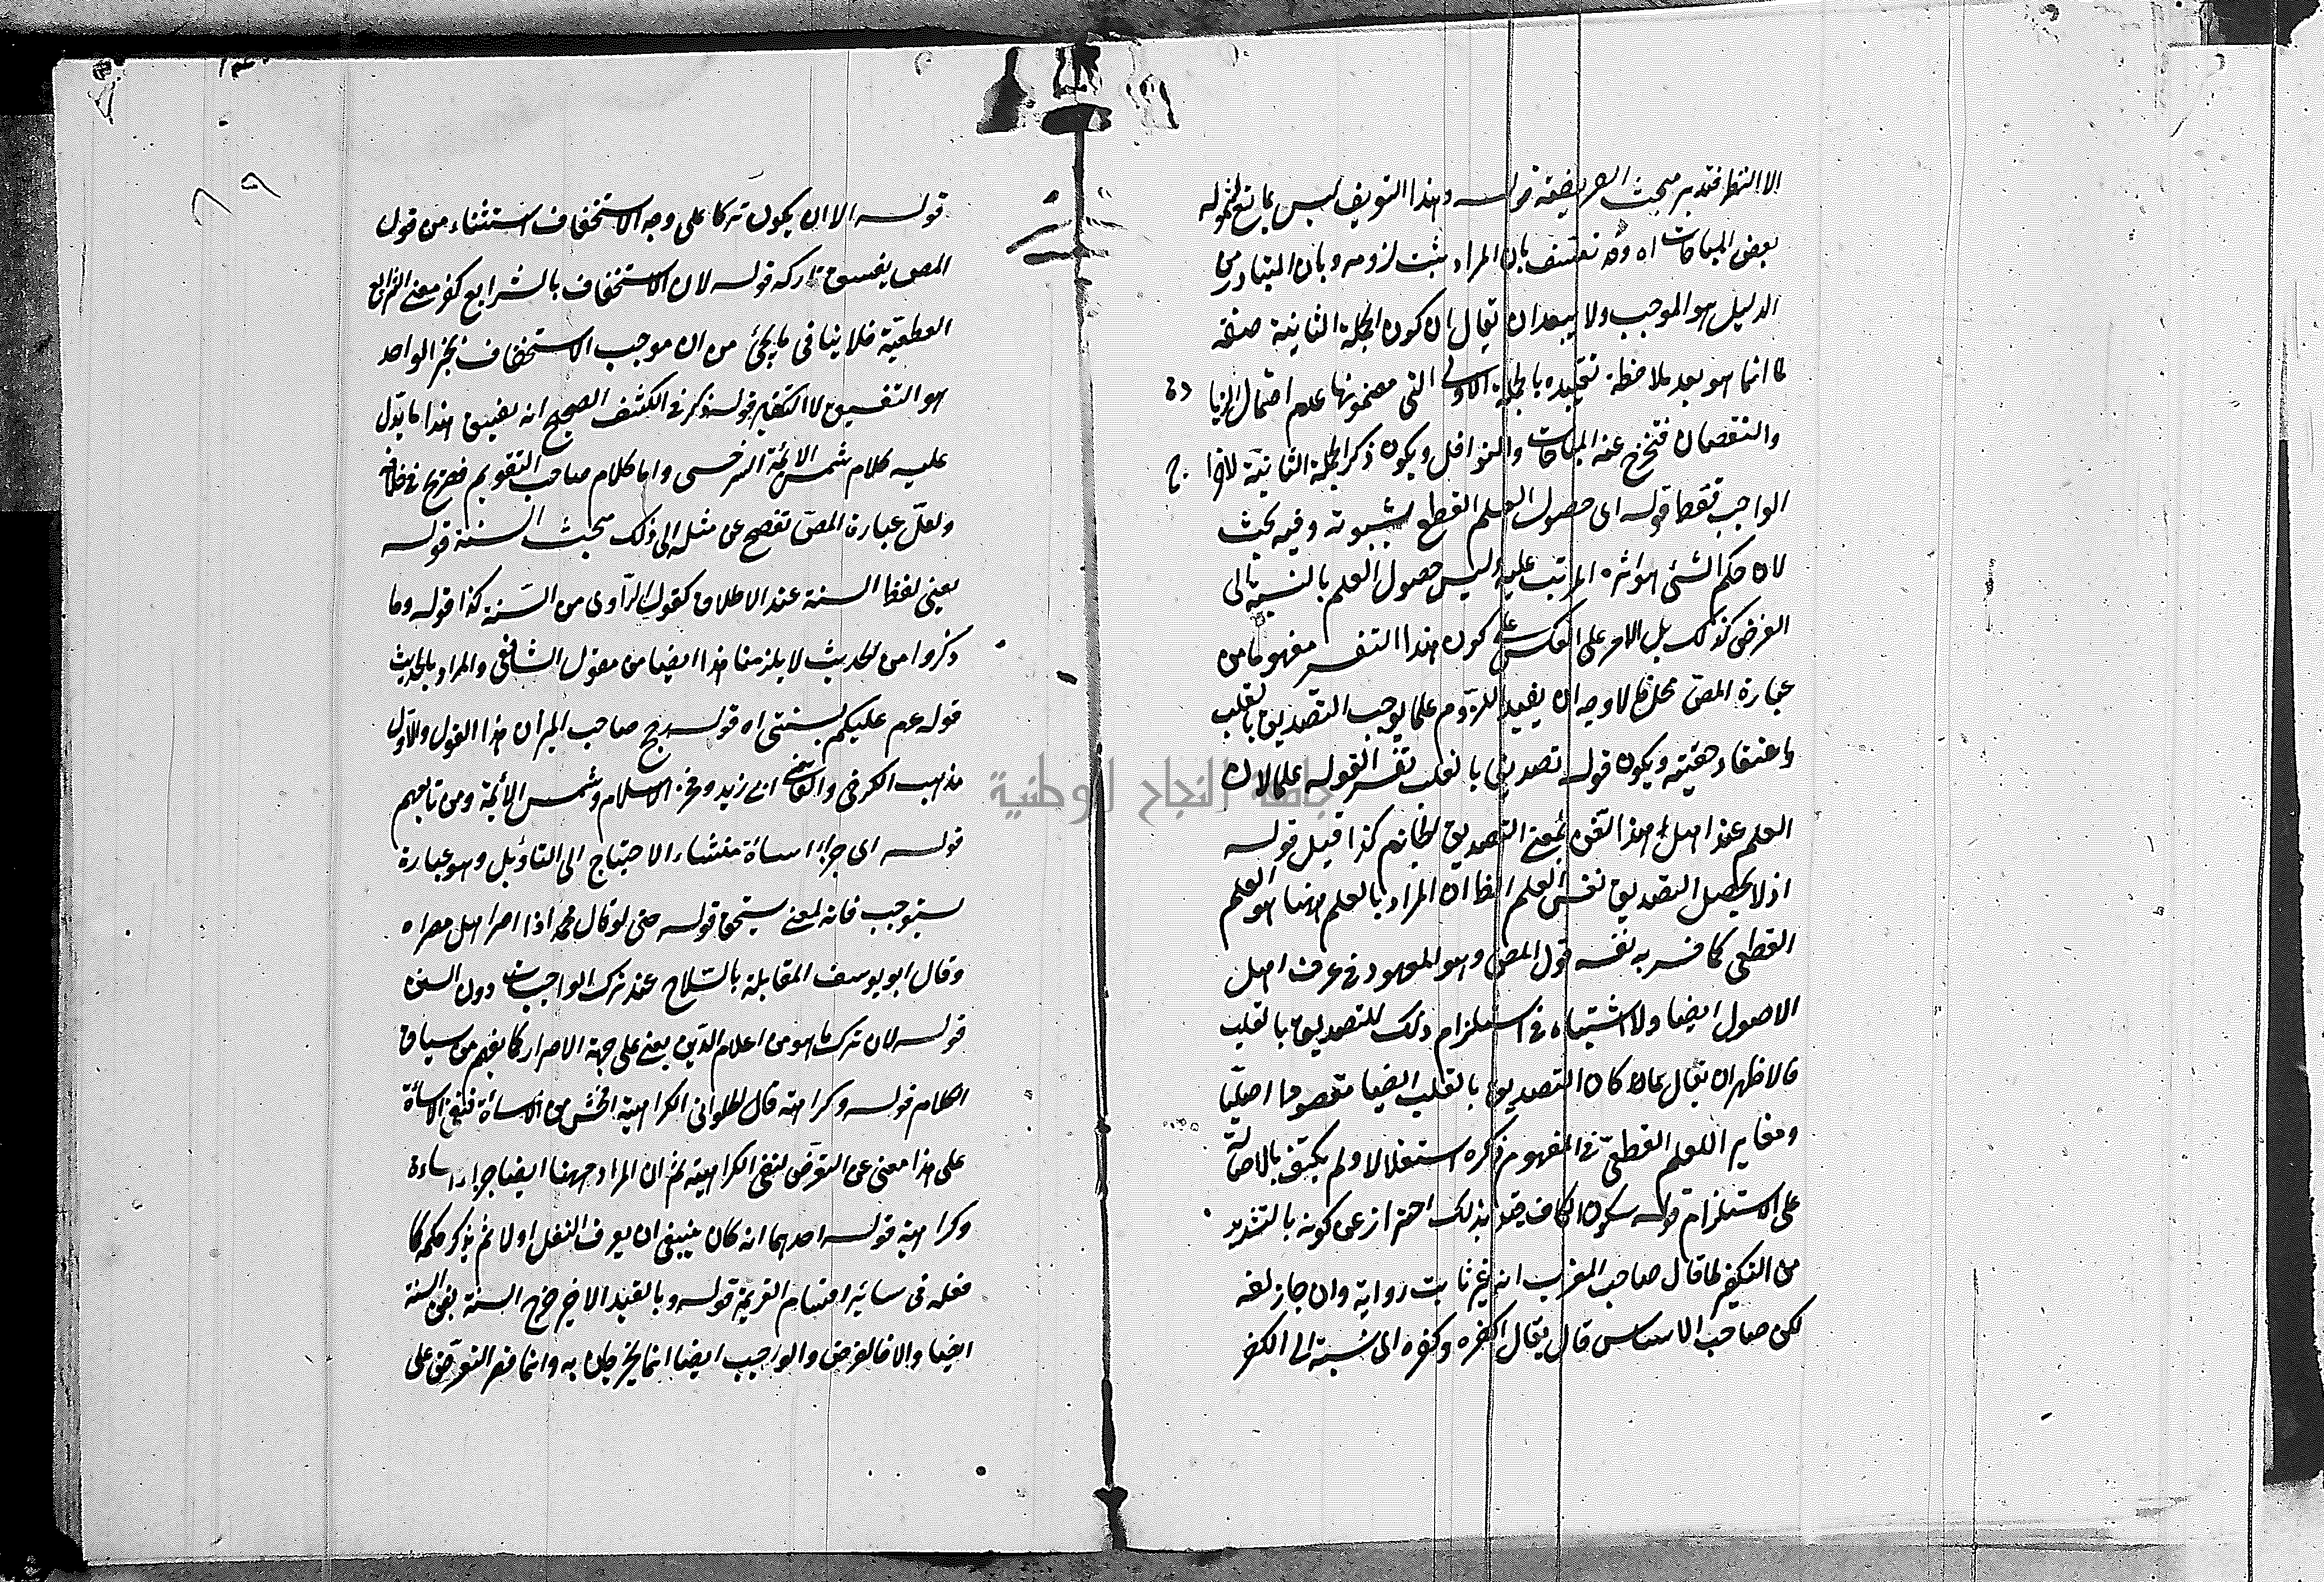 الا النظر فتدبر مبحث الفريضة قوله وهذا التعريف ليس بمانع لشموله
بعض المباحات اه وقد تعسف بان المراد ثبت لزومه وبان المتبادر من
الدليل هو الموجب ولا يبعد ان يقال ان كون الجملة الثانية صفة
لما انما هو بعد ملاحظة تقييده بالجملة الاولى التي مضمونها عدم احتمال الزيادة
والنقصان فتخرج عنه المباحات والنوافل ويكون ذكر الجملة الثانية لاخراج
الواجب فقط قوله اى حصول العلم القطعى بثبوته وفيه بحث
لان حكم الشئ هو اثره المرتب عليه وليس حصول العلم بالنسبة الى
الفرض كذلك بل الامر على العكس على كون هذا التفسير مفهوما من
عبارة المص محل والاوجه ان يفيد اللزوم علما يوجب التصديق بالقلب
واعتقاد حقيته ويكون قوله تصديق بالقلب تفسير القوله علما لان
العلم عند اهل هذا الفن بمعنى التصديق الجازم كذا قيل قوله
اذ لا يحصل التصديق نفس العلم الظ ان المراد بالعلم ههنا هو العلم
القطعى كما فسر به نفسه قول المص وهو المعهود فى عرف اهل
الاصول ايضا ولا اشتباه فى استلزام ذلك للتصديق بالقلب
فالاظهر ان يقال لما كان التصديق بالقلب ايضا مقصودا اصليا
ومغاير اللعلم القطعى فى المفهوم ذكره استقلالا ولم يكتف بالاصالة
على الاستلزام قوله سكون الكاف قيد بذلك احتراز عن كونه بالتشديد
من التكفير لما قال صاحب المغرب انه غير ثابت رواية وان جاز لغة
لكن صاحب الاساس قال يقال اكفره وكفره اى نسبة الى الكفر
٨٩
قوله الا ان يكون تركا على وجه الاستخفاف استثناء من قول
المص يفسق تاركه قوله لان الاستخفاف بالشرايع كفر معنى الشرايع
القطعية فلا ينافى ما يجئ من ان موجب الاستخفاف بخبر الواحد
هو التفسيق لا التكفير قوله ذكر فى الكشف الصحيح انه يفسق هذا ما يدل
عليه كلام شمس الائمة السرخسى واما كلام صاحب التقويم فصريح فى خلافه
ولعل عبارة المص تفصح عن مثله الى ذلك مبحث السنة قوله
يعنى لفظ السنة عند الاطلاق كقول الراوى من السنة كذا قوله وما
ذكروا من الحديث لا يلزمنا هذا ايضا من مقول الشافعى والمراد بالحديث
قوله عم عليكم بسنتى اه قوله رجح صاحب الميزان هذا القول والاول
مذهب الكرخى والقاضى ابى زيد وفخر الاسلام وشمس الائمة ومن تابعهم
قوله اى جزاء اساءة منشاء الاحتياج الى التاويل وهو عبارة
يستوجب فانه بمعنى يستحق قوله حتى لو قال محمد اذا اصر اهل مصر اه
وقال ابو يوسف المقابلة بالسلاح عند ترك الواجبات دون السنن
قوله لان ترك ما هو من اعلام الدين يعنى على جهة الاصرار كما يفهم من سياق
الكلام قوله وكراهته قال الحلوانى الكراهية افحش من الاساءة فنفى الاساءة
على هذا معنى عن التعرض لنفى الكراهية ثم ان المراد ههنا ايضا جزاء اساءة
وكراهية قوله احدهما انه كان ينبغى ان يعرف النفل اولا ثم يذكر حكمه كما
فعله فى سائر اقسام العزيمة قوله وبالقيد الاخير خرج السنة بقى السنة
ايضا والا فالفرض والواجب ايضا انما يخرجان به وانما قصر التعرض على
جامعة النجاح الوطنية